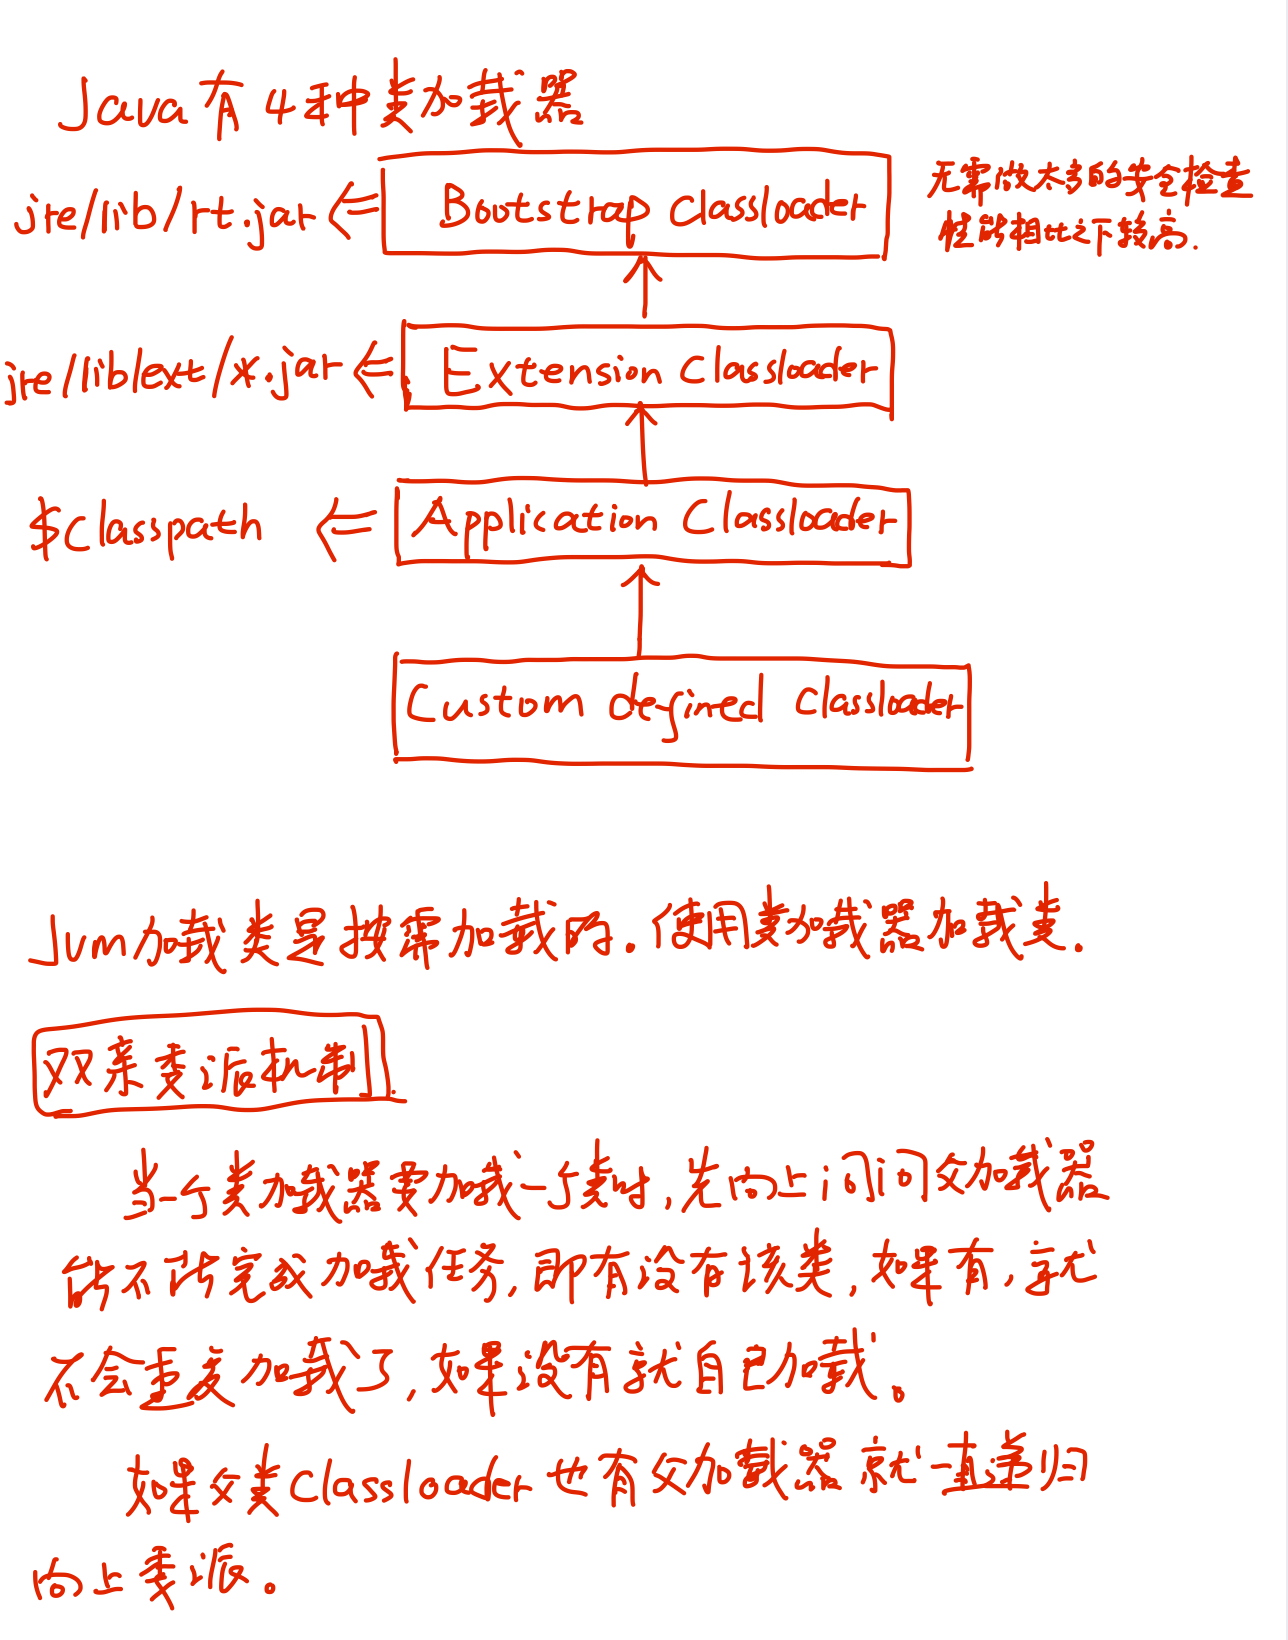 Java有4种类加载器
jre/lib/rt.jar ⇐ Bootstrap Classloader
无需做太多的安全检查
性能相比之下较高.
jre/lib/ext/*.jar ⇐ Extension Classloader
$Classpath ⇐ Application Classloader
Custom defined Classloader
Jvm加载类是按需加载的.使用类加载器加载类.
双亲委派机制.
当一个类加载器要加载一个类时,先向上询问父加载器
能不能完成加载任务,即有没有该类,如果有,就
不会重复加载了,如果没有就自己加载。
如果父类Classloader也有父加载器就一直递归
向上委派。